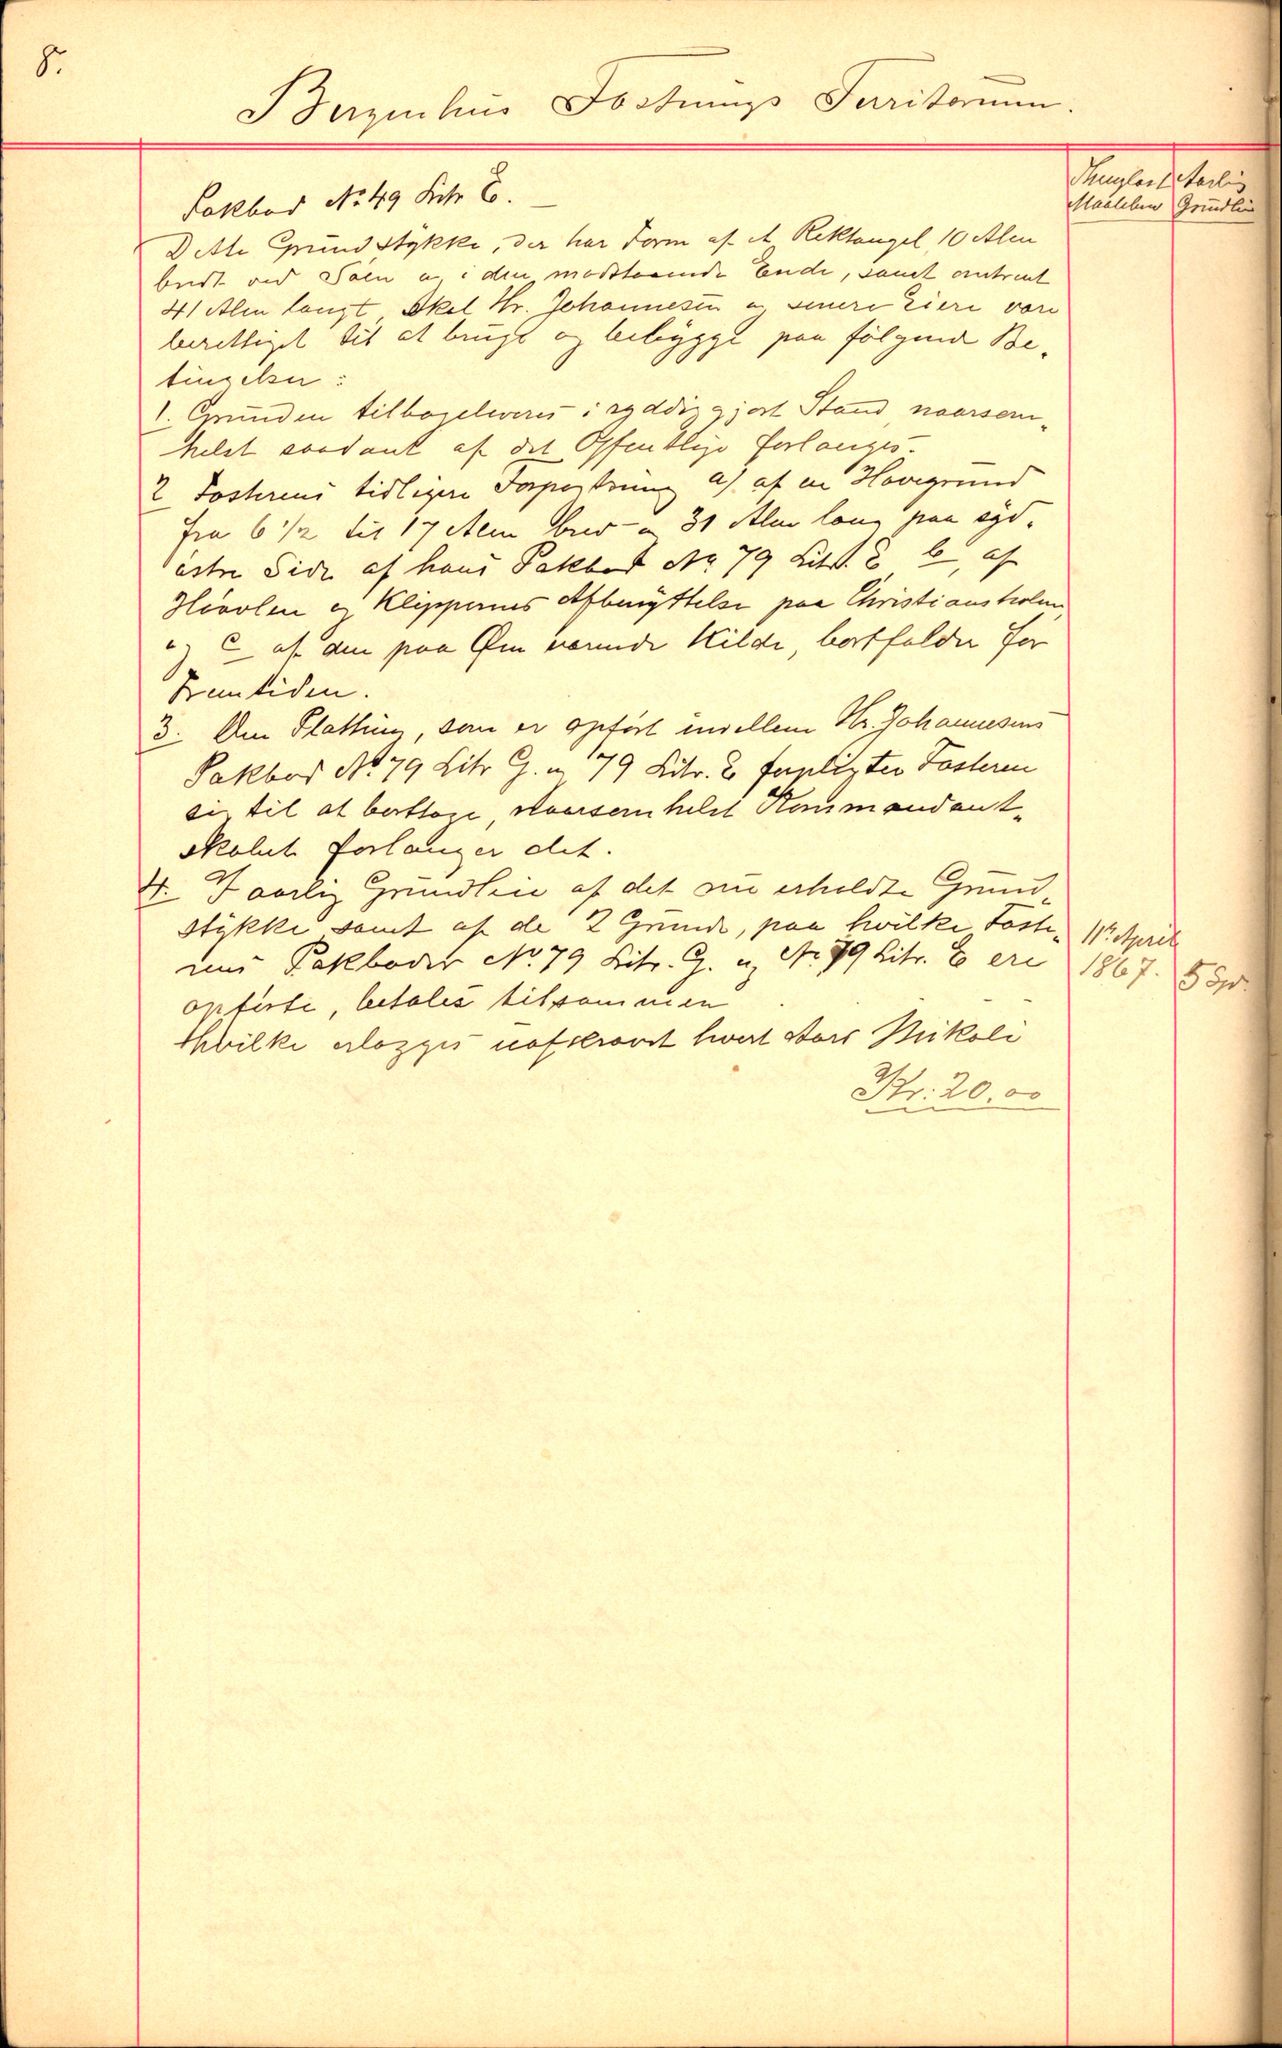 8.
Bergenhus Fæstnings Territorium.
Thinglæst Aarlig
Maalebrev Grundleie
Pakbod No 49 Litr E.
Dette Grundstykke, der har Form af et Rektangel 10 Alen
bredt ved Söen og i den modstaaende Ende, samt omtrent
41 Alen langt, skal Hr. Johannesen og senere Eiere være
berettiget til at bruge og bebygge paa fölgende Be-
tingelser:
1. Grunden tilbageleveres i ryddiggjort Stand, naarsom-
helst saadant af det Offentlige forlanges.
2 Fæsterens tidligere Forpagtning a) af en Havegrund
fra 6 1/2 til 17 Alen bred og 31 Alen lang paa syd-
östre Side af hans Pakbod No 79 Litr. E, b, af
Haavolen og Klippernes Afbenyttelse paa Christiansholm,
og c af den paa Øen værende Kilde, bortfalder for
Fremtiden.
3. Den Platting, som er opfört imellem Hr. Johannesens
Pakbod No 79 Litr G. og 79 Litr. E forpligter Fæsteren
sig til at borttage, naarsomhelst Kommandant-
skabet forlanger det.
4. I aarlig Grundleie af det nu erholdte Grund-
stykke samt af de 2 Grunde, paa hvilke Fæste-
rens Pakboder No 79 Litr. G. og No 79 Litr. E ere
opförte, betales tilsammen
hvilke erlægges uafkrævet hvert Aars Mikeli
11te April
1867. 5 Spd.
Kr. 20.00